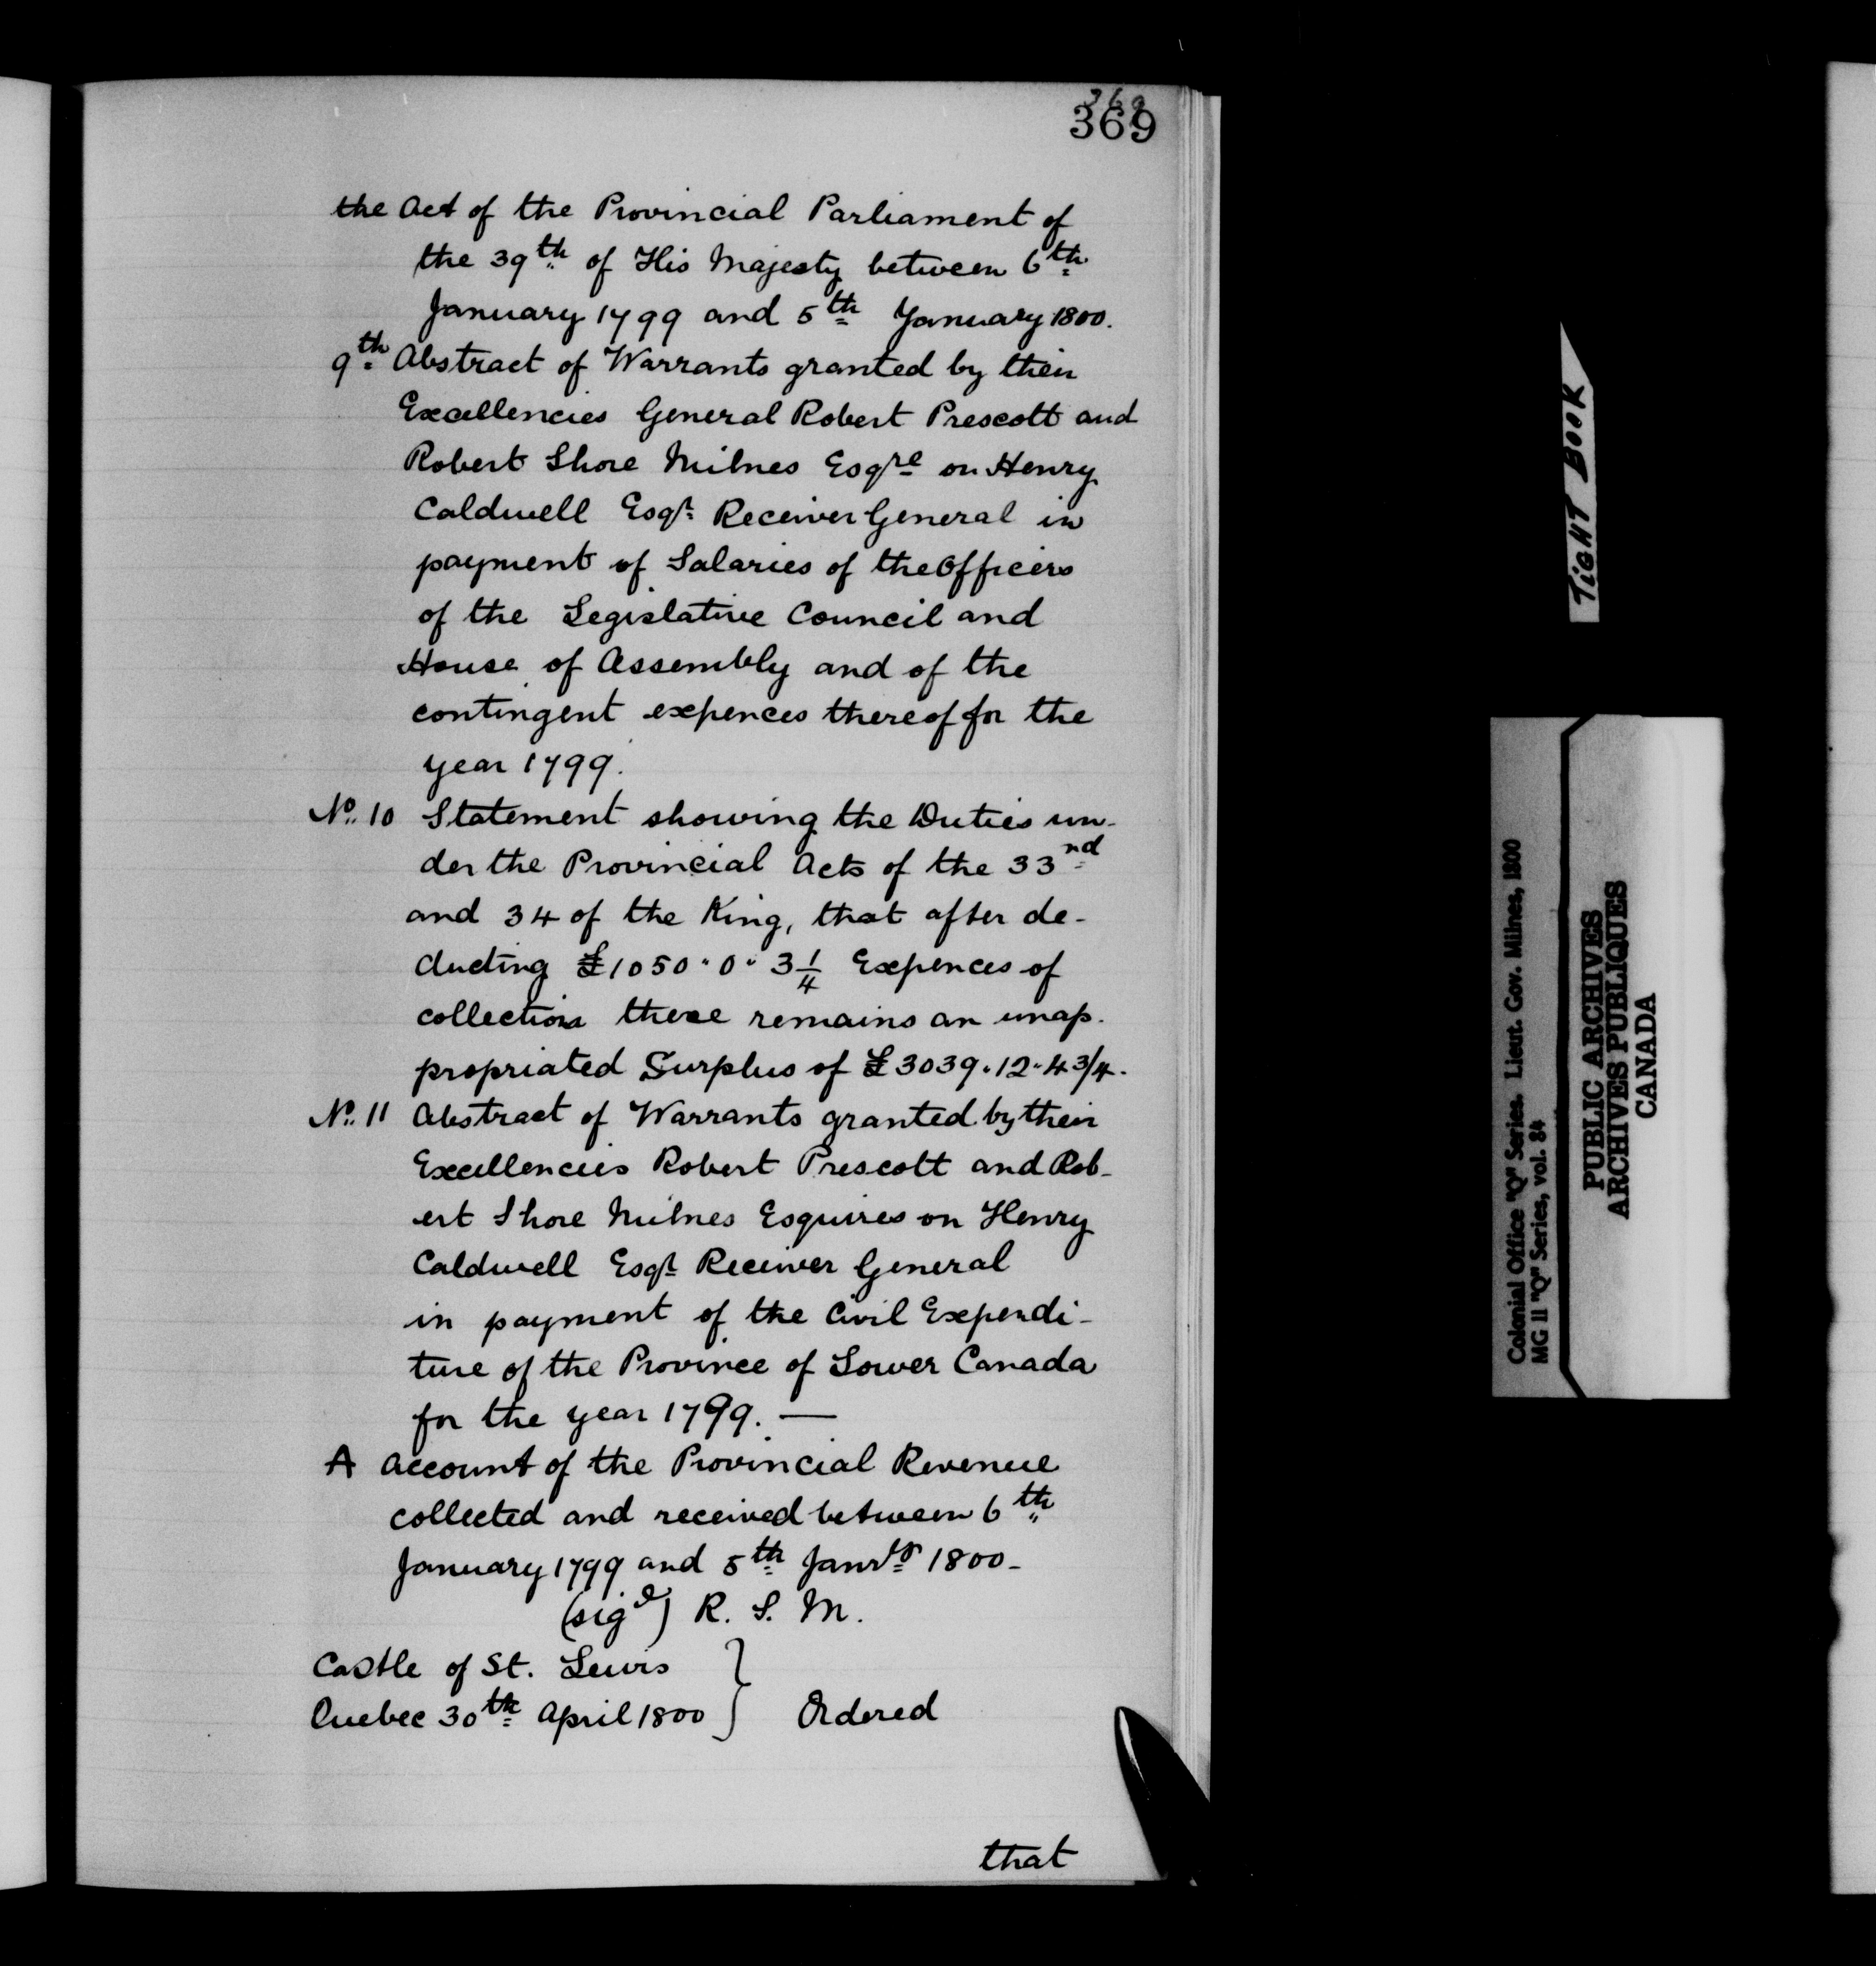 369
369
the Act of the Provincial Parliament of
the 39th of His Majesty between 6th
January 1799 and 5th January 1800.
9th Abstract of Warrants granted by their
Excellencies General Robert Prescott and
Robert Shore Milnes Esqre on Henry
Caldwell Esqr Receiver General in
payment of Salaries of the Officers
of the Legislative Council and
House of Assembly and of the
contingent expences thereof for the
year 1799.
No. 10 Statement showing the Duties un-
der the Provincial Acts of the 33nd
and 34 of the King, that after de-
ducting £1050.0.3 1/4 Expences of
collection there remains an unap-
propriated Surplus of £3039.12.4 3/4.
No. 11 Abstract of Warrants granted by their
Excellencies Robert Prescott and Rob-
ert Shore Milnes Esquires on Henry
Caldwell Esqr Receiver General
in payment of the Civil Expendi-
ture of the Province of Lower Canada
for the year 1799. —
A Account of the Provincial Revenue
collected and received between 6th
January 1799 and 5th Janry 1800-
(sigd) R. S. M.
Castle of St. Lewis
Quebec 30th April 1800 } Ordered
that
TIGHT BOOK
Colonial Office "Q" Series. Lieut. Gov. Milnes, 1800
MG 11 "Q" Series, vol. 84
PUBLIC ARCHIVES
ARCHIVES PUBLIQUES
CANADA